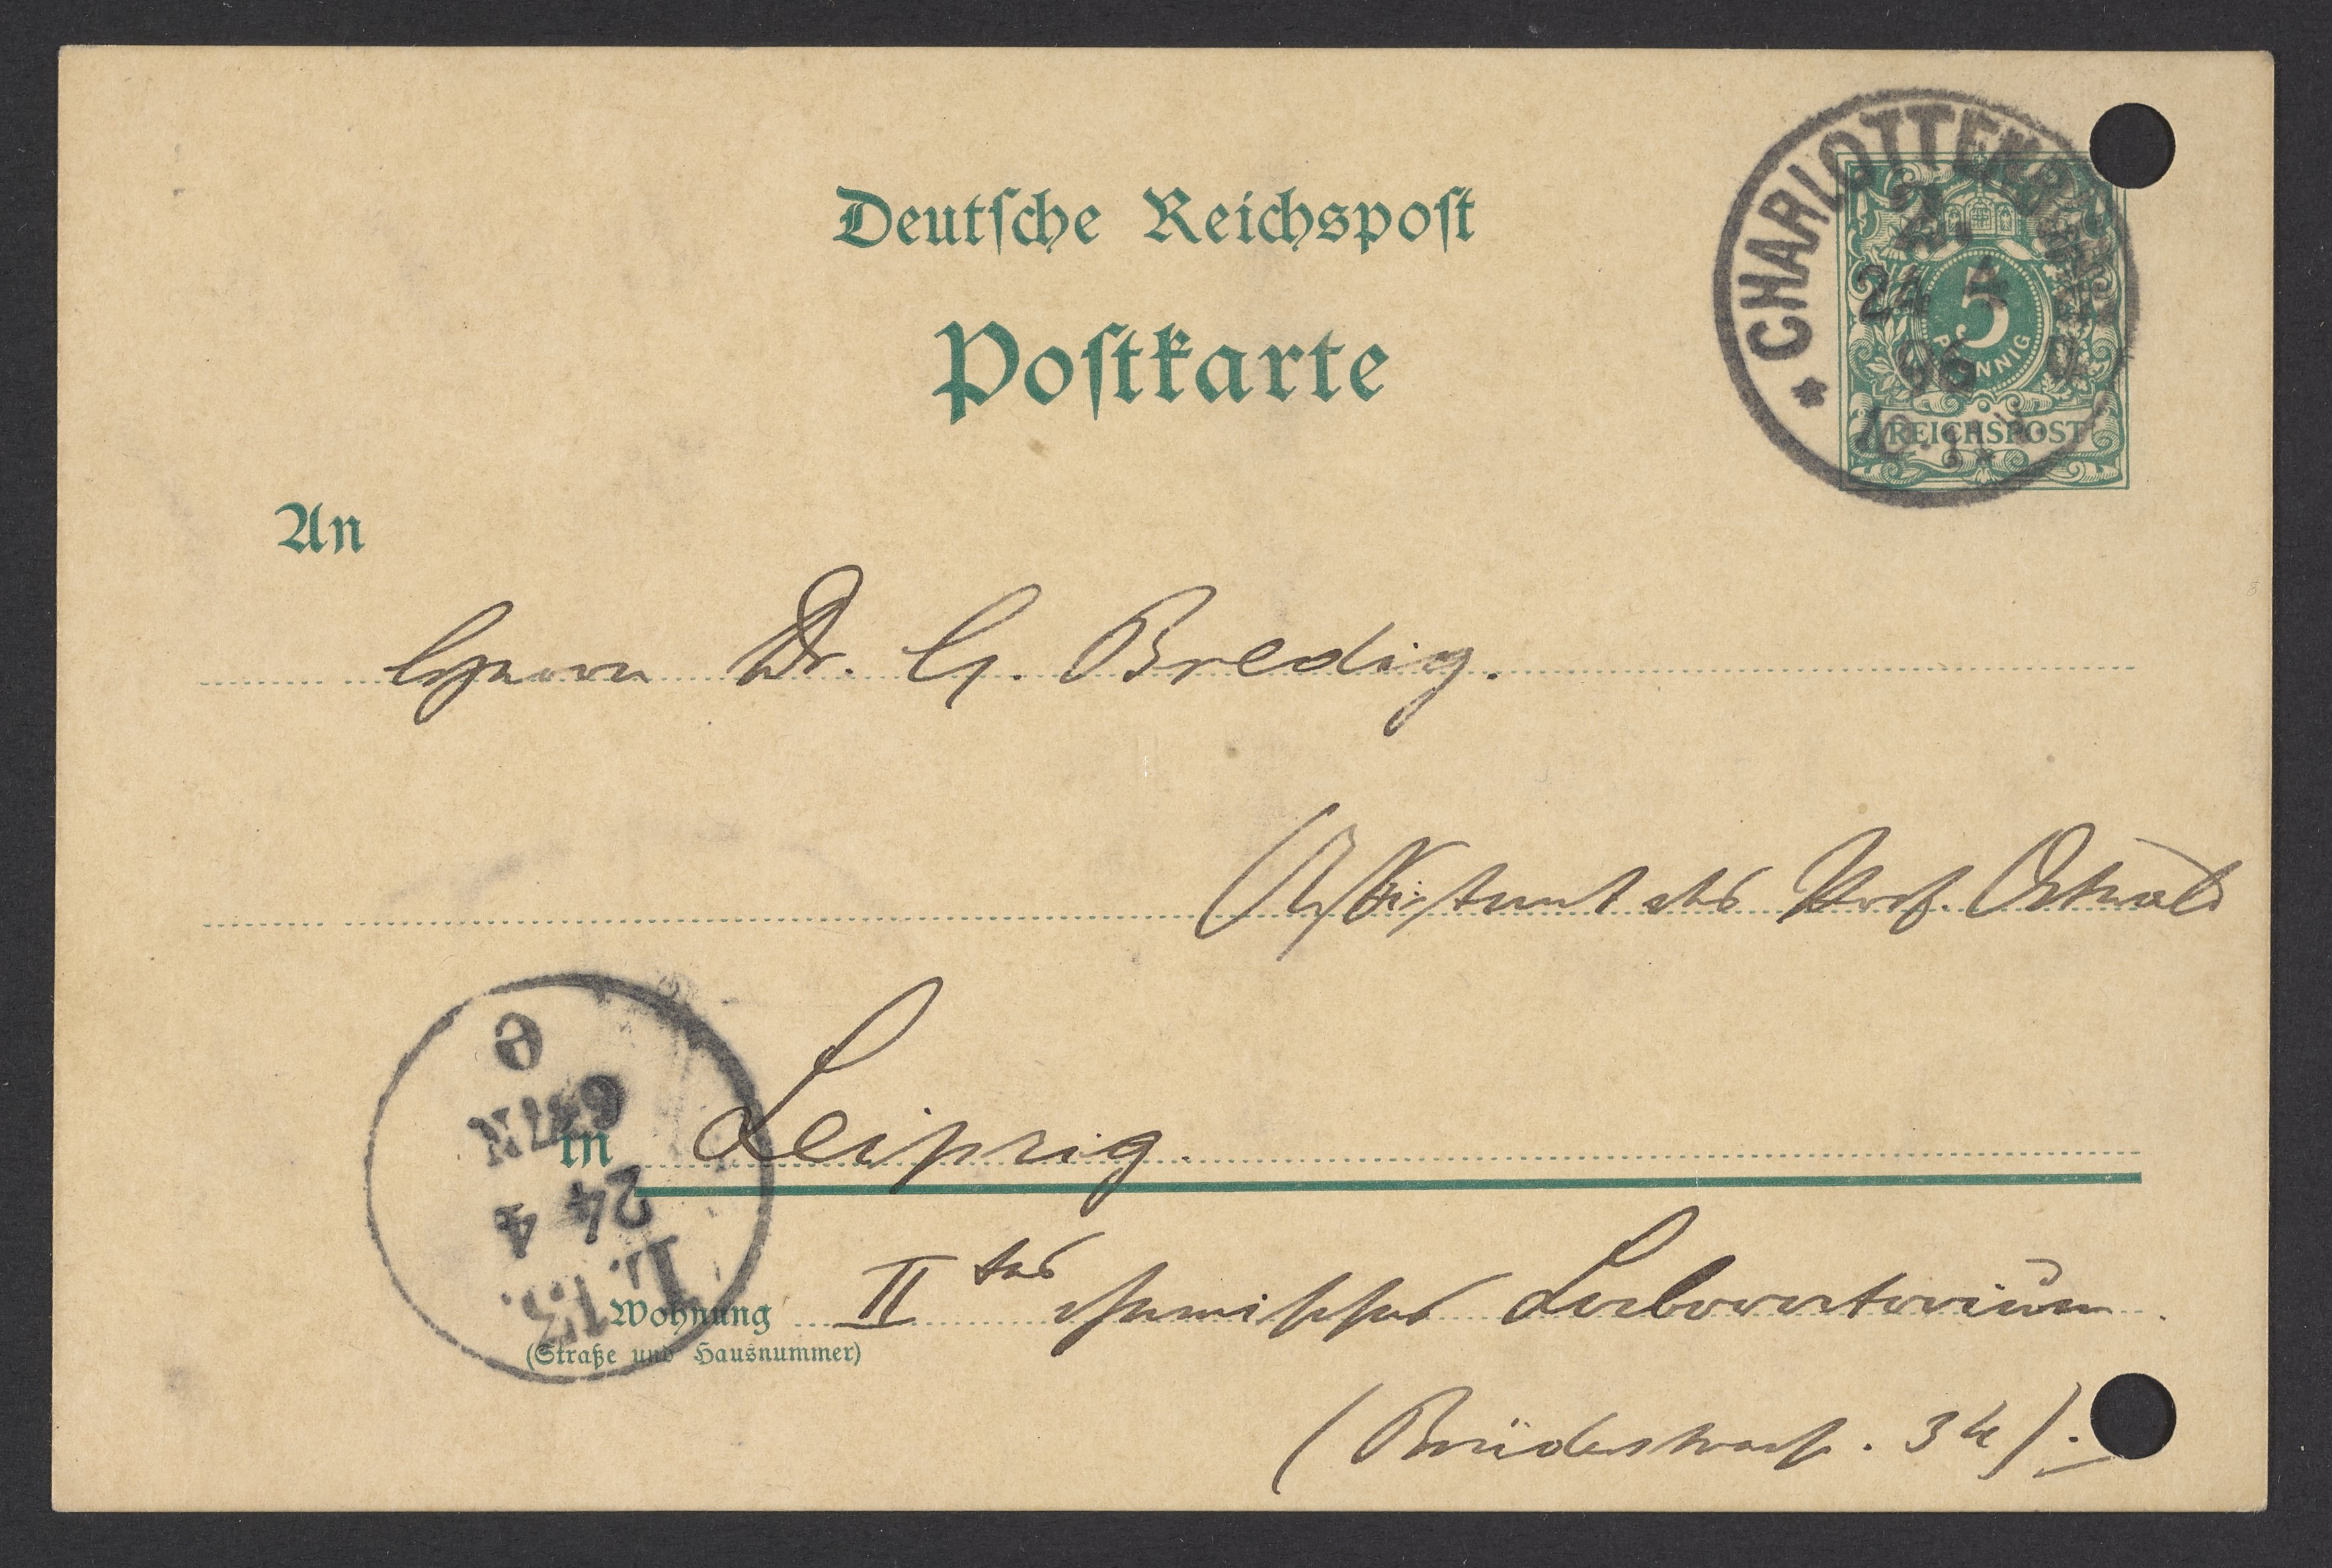 Deutsche Reichspost
Postkarte
CHARLOTTENBURG
2.
24 4
96
5
PFENNIG
REICHSPOST
An
Herrn Dr. G. Bredig.
(Assistent des Prof. Ostwald
in Leipzig.
IItes chemisches Laboratorium
Wohnung
(Straße und Hausnummer)
(Brüderstraß. 34).
L. 13.
24 4
6-7N
e